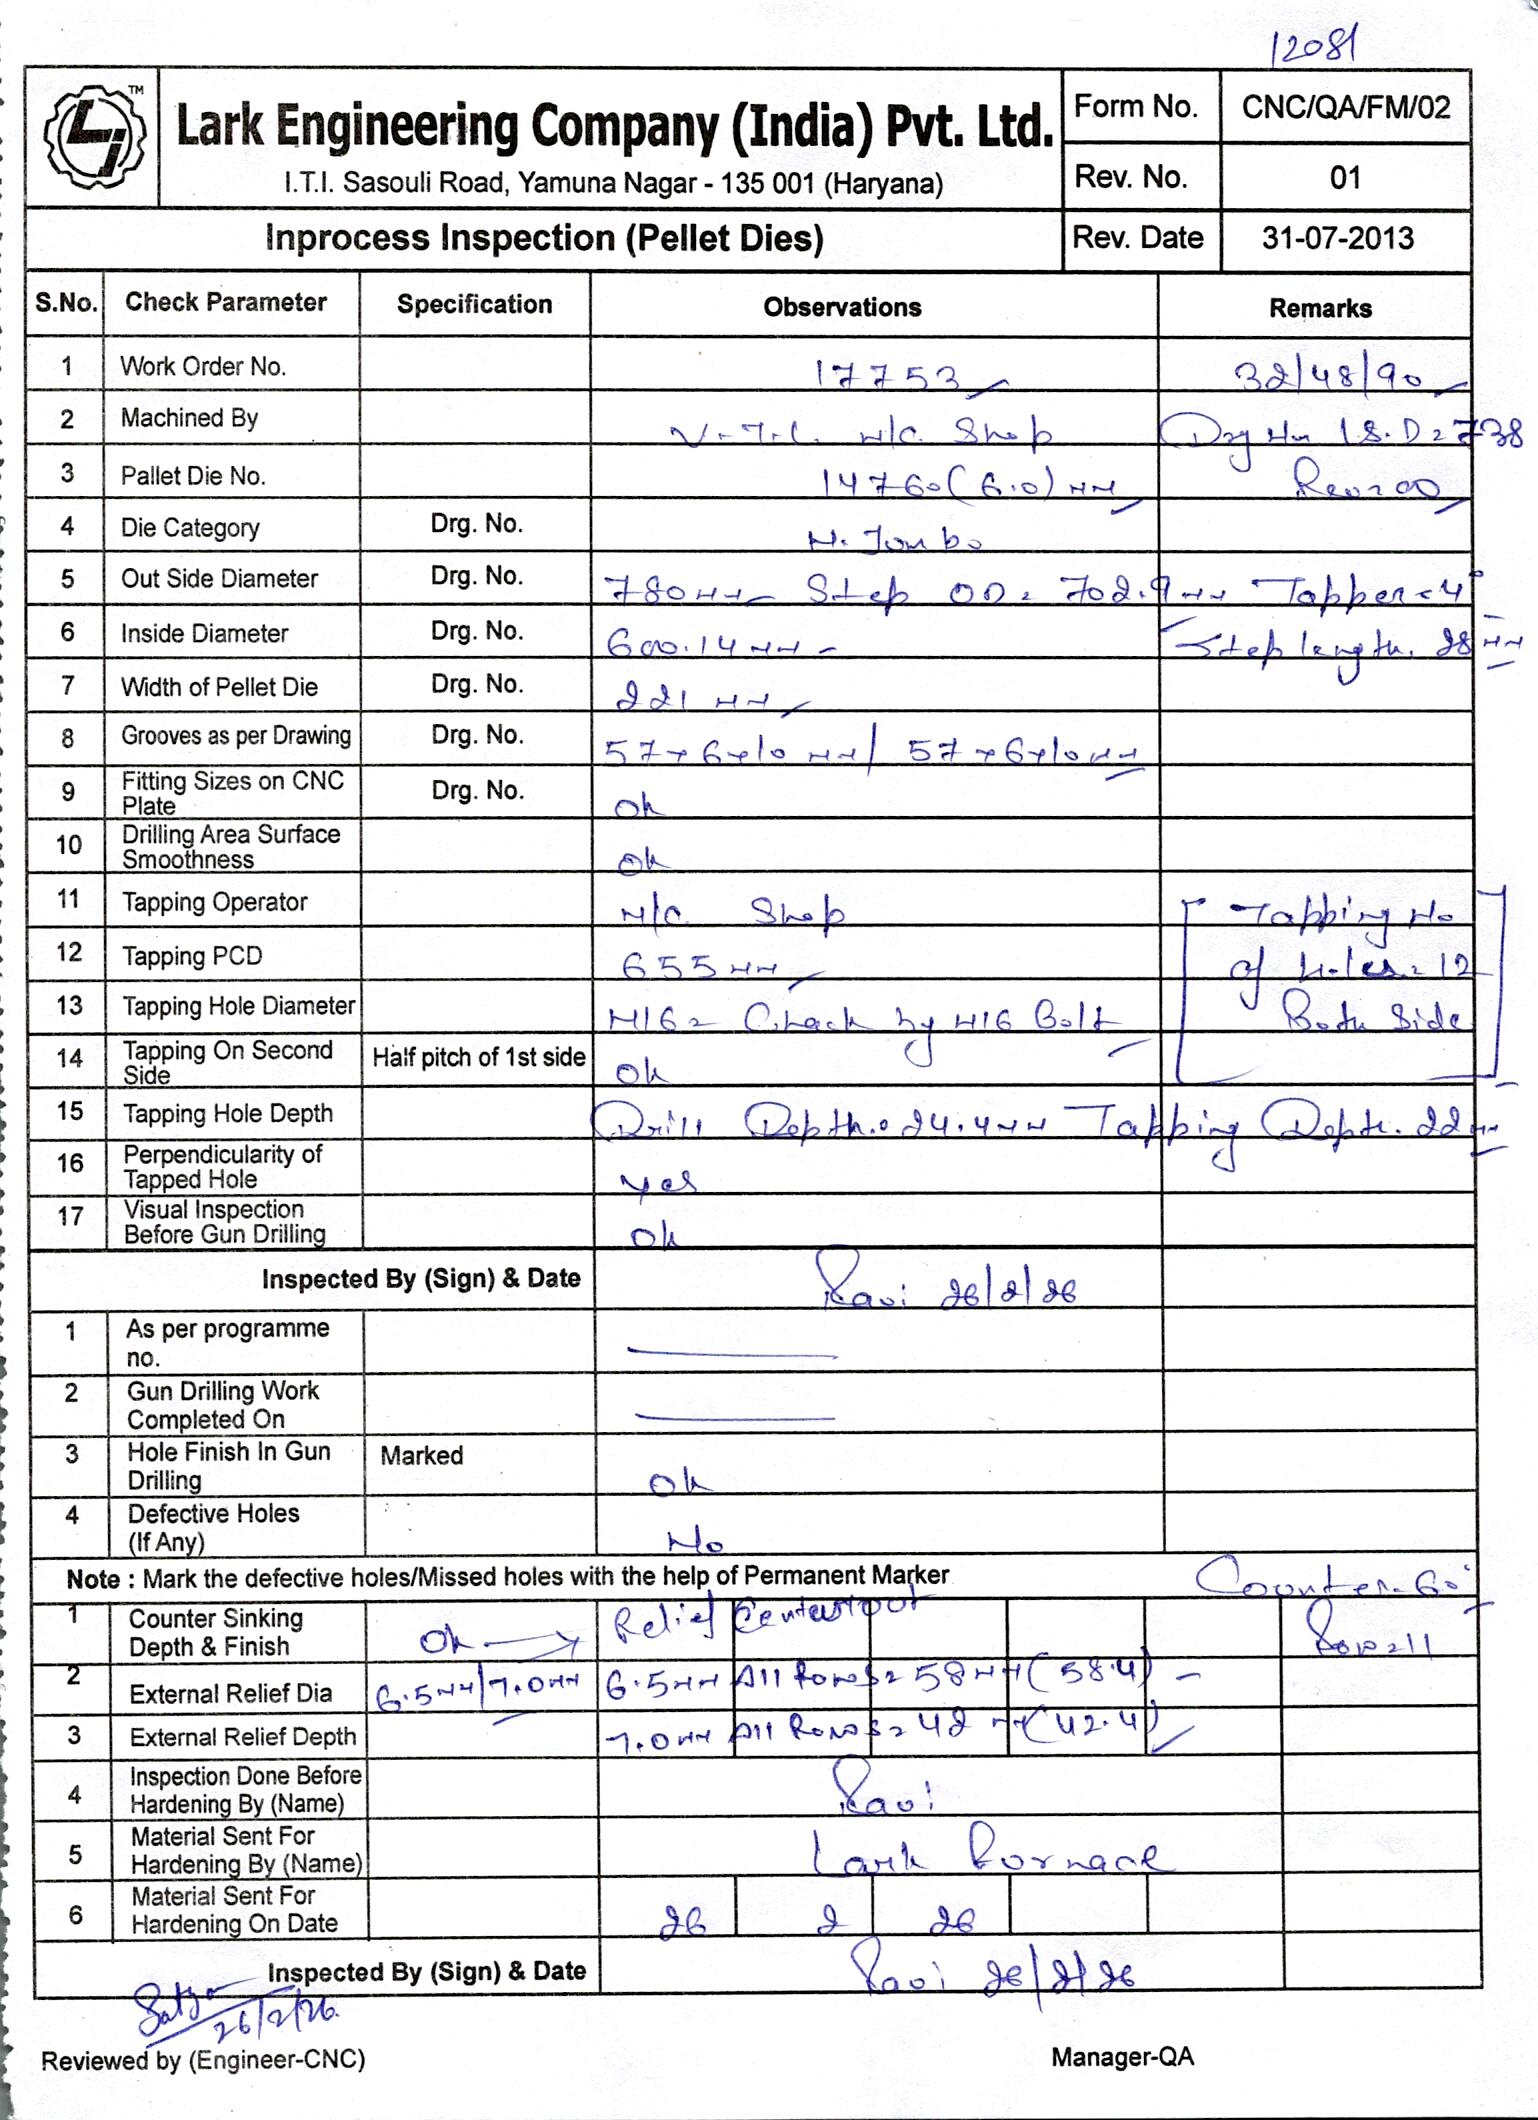 12081
TM
Lark Engineering Company (India) Pvt. Ltd.
I.T.I. Sasouli Road, Yamuna Nagar - 135 001 (Haryana)
Form No. CNC/QA/FM/02
Rev. No. 01
Inprocess Inspection (Pellet Dies) Rev. Date 31-07-2013
S.No. Check Parameter Specification Observations Remarks
1 Work Order No. 17753 32/48/90
2 Machined By M/C. Shop Drg No I.S.D = 738
3 Pallet Die No. 14760 (6.0) MM Rev=00
4 Die Category Drg. No. M. Jumbo
5 Out Side Diameter Drg. No. 780MM Step OD = 702.9MM Tapper = 4°
6 Inside Diameter Drg. No. 600.14MM Step length. 28MM
7 Width of Pellet Die Drg. No. 221 MM
8 Grooves as per Drawing Drg. No. 57x6x10 MM/ 57x6x10MM
9 Fitting Sizes on CNC Plate Drg. No. Ok
10 Drilling Area Surface Smoothness Ok
11 Tapping Operator M/C. Shop Tapping No
12 Tapping PCD 655MM of holes = 12
13 Tapping Hole Diameter M16 = Check by M16 Bolt Both Side
14 Tapping On Second Side Half pitch of 1st side Ok
15 Tapping Hole Depth Drill Depth = 24.4MM Tapping Depth. 22MM
16 Perpendicularity of Tapped Hole Yes
17 Visual Inspection Before Gun Drilling Ok
Inspected By (Sign) & Date Ravi 26/2/26
1 As per programme no.
2 Gun Drilling Work Completed On
3 Hole Finish In Gun Drilling Marked Ok
4 Defective Holes (If Any) No
Note : Mark the defective holes/Missed holes with the help of Permanent Marker Counter-60°
1 Counter Sinking Depth & Finish Ok Relief Row=11
2 External Relief Dia 6.5MM/7.0MM 6.5MM All Rows = 58MM (58.4)
3 External Relief Depth 7.0MM All Rows = 42 MM (42.4)
4 Inspection Done Before Hardening By (Name) Ravi
5 Material Sent For Hardening By (Name) Lark Furnace
6 Material Sent For Hardening On Date 26 2 26
Inspected By (Sign) & Date Ravi 26/2/26
26/2/26.
Reviewed by (Engineer-CNC) Manager-QA